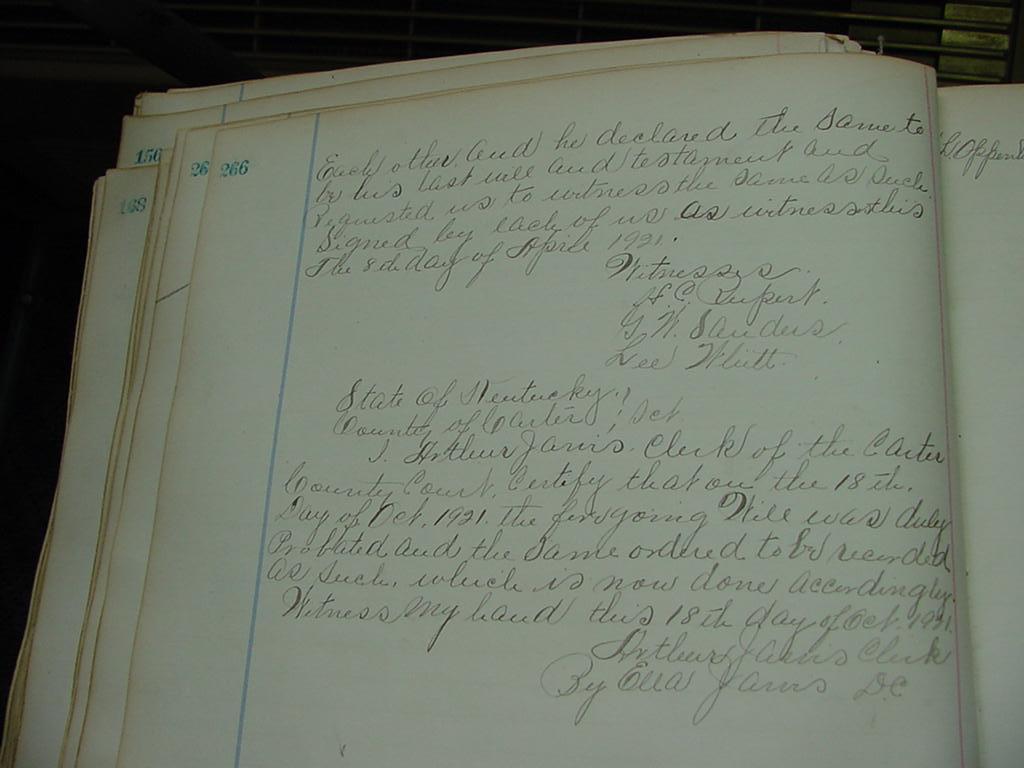 156
168
26
266
Each other, and he declared the same to
be his last will and testament and
requested us to witness the same as such.
Signed by each of us as witness this
The 8th day of April 1921.
Witnesses
H. C. Rupert.
G. W. Sanders.
Lee Whitt.
State of Kentucky,
County of Carter, Sct
I. Arthur Jarvis. Clerk of the Carter
County Court, Certify that on the 18th.
Day of Oct. 1921. the foregoing Will was duly
Probated and the same ordered to be recorded
as such, which is now done accordingly.
Witness my hand this 18th day of Oct. 1921.
Arthur Jarvis Clerk
By Ella Jarvis D.C